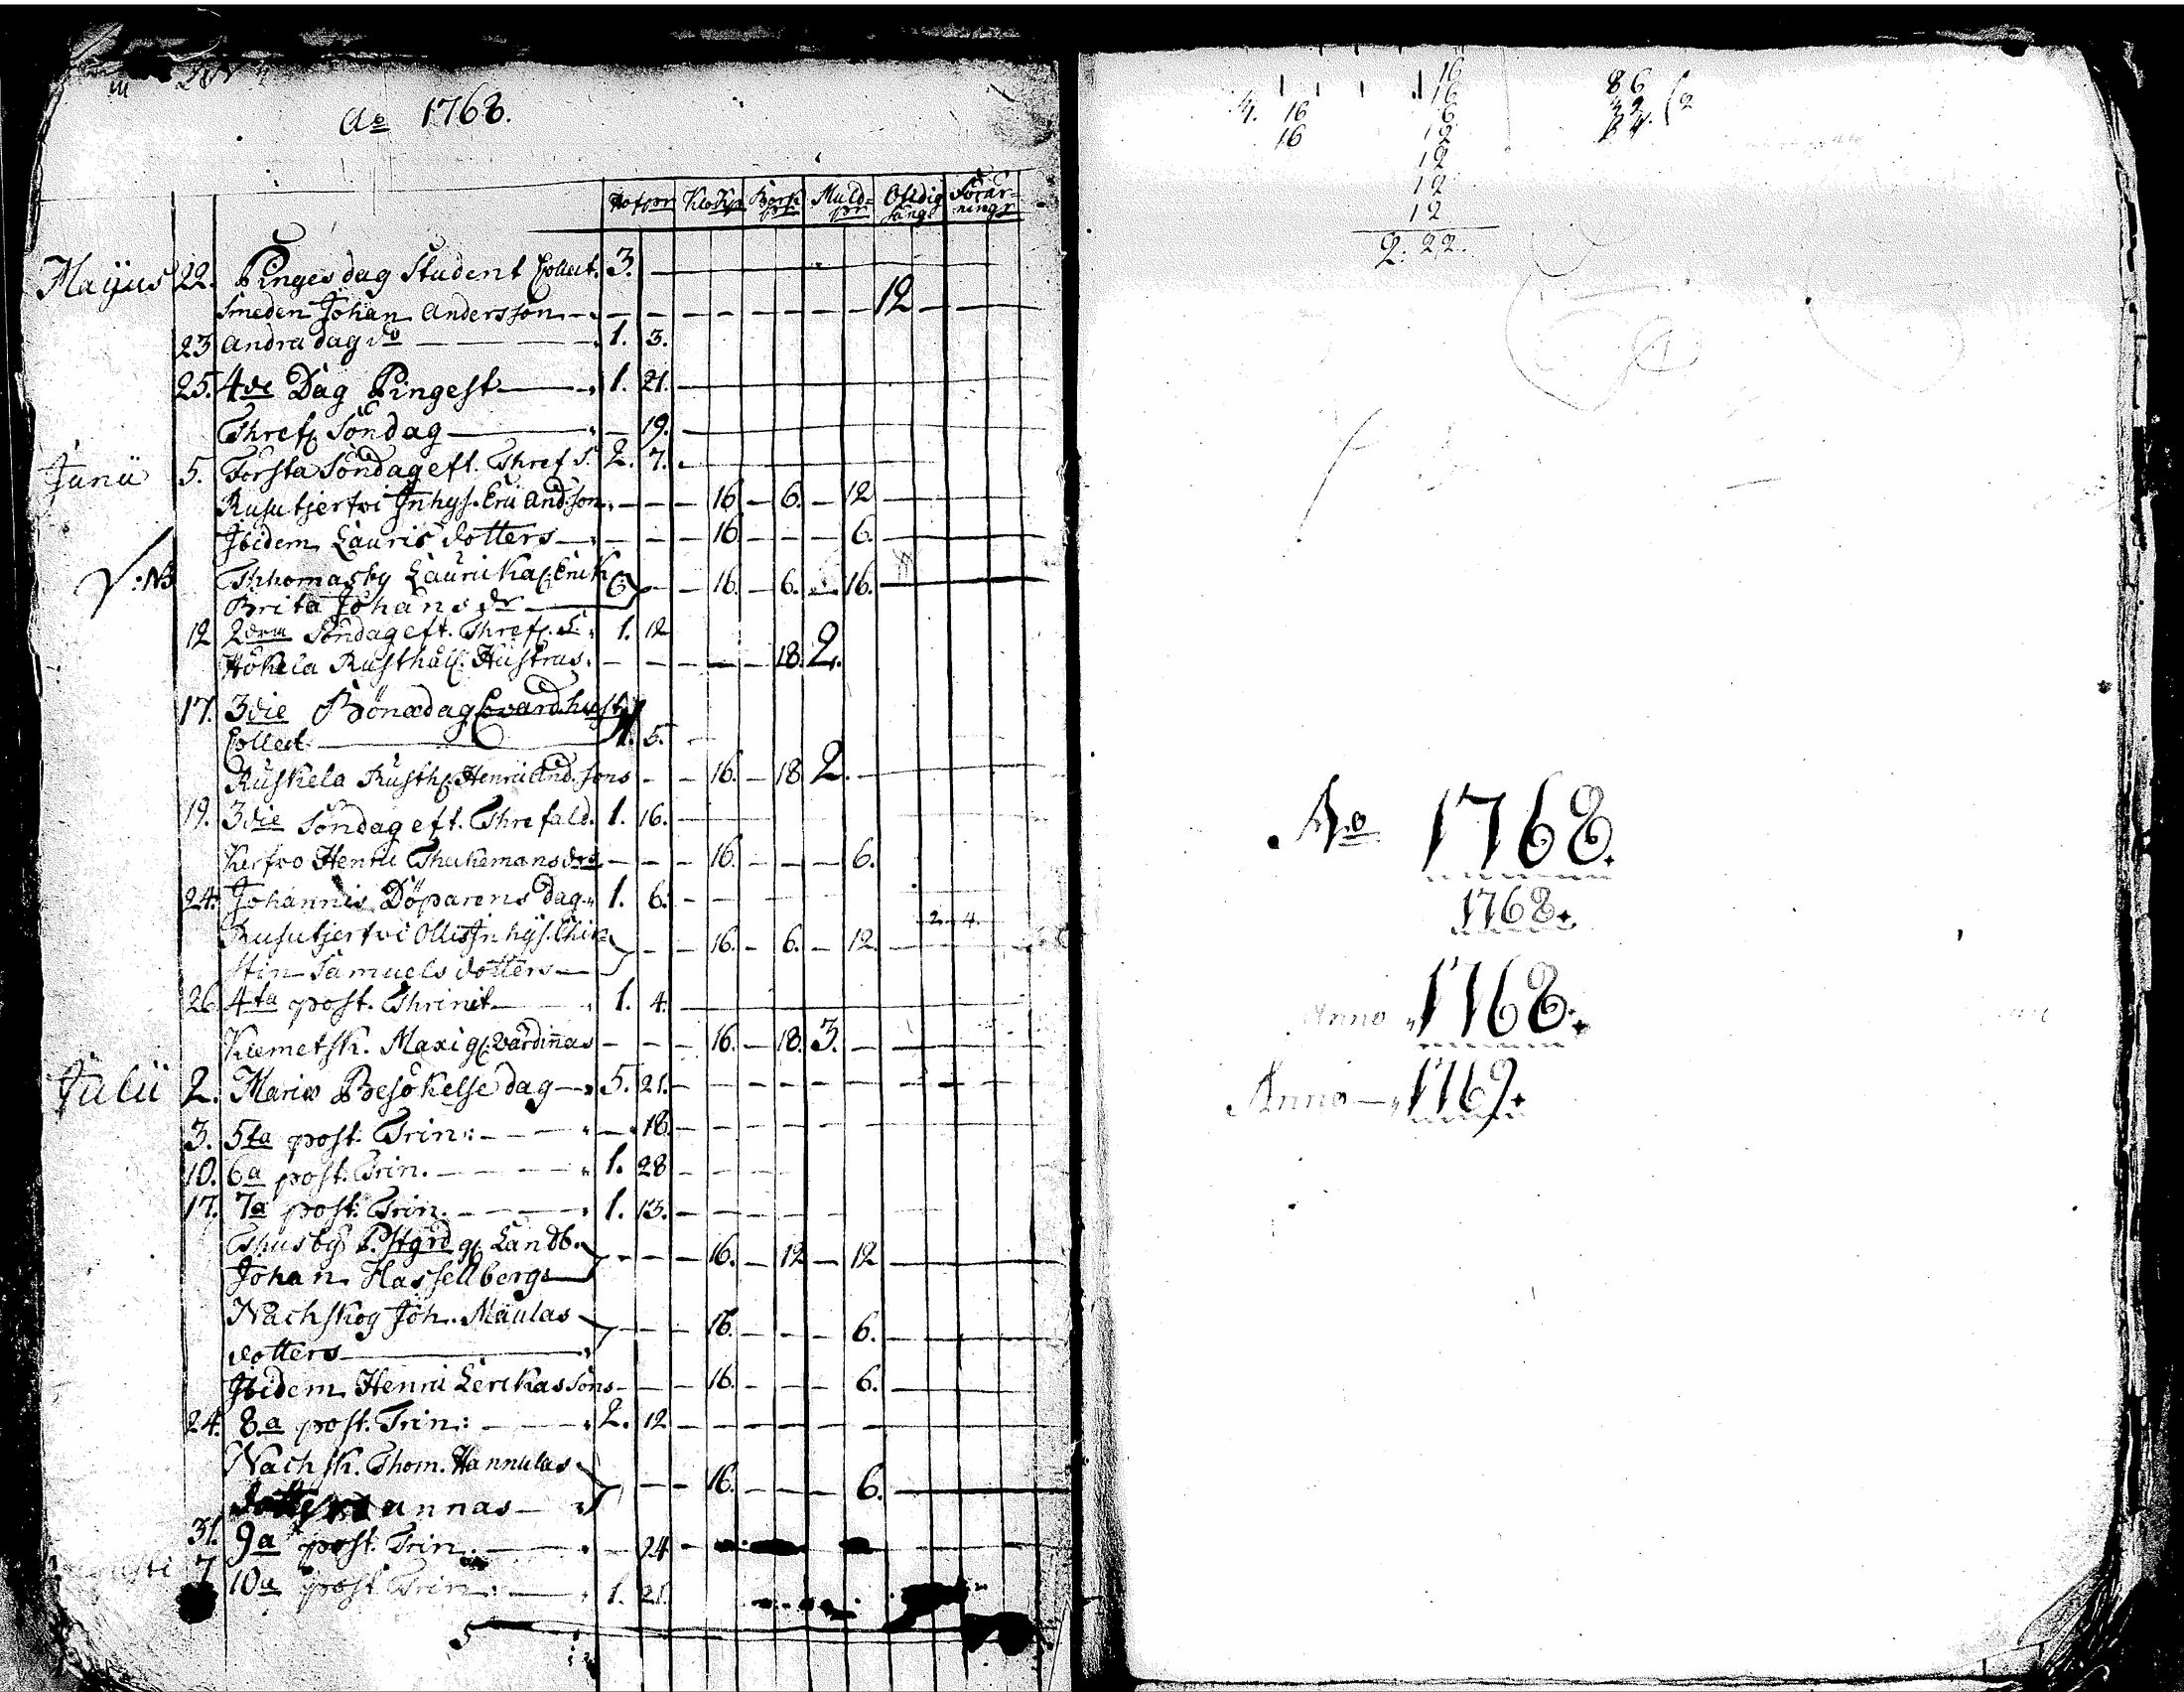 Ao 1768.
Hofpr Klockpr Barkpr Muldpr Ofidig Förär-
nings
Mayus 22. Pingesdag Student Collect. 3.
Smeden Johan Andersson 12
23 Andra dag do 1. 3.
25. 4de Dag Pingest 1. 21.
Thref. Söndag 19.
Junii 5. Forsta Söndag eft. Thref S. 2. 7.
Rusutjerfvi Inhys. Eric And.son 16 6. 12
Ibidem Lauris dotters 16 6.
:NB Thhomasby Lauri Ka Erik 16. 6. 16.
Brita Johans dr
12 2dra Söndag eft. Thref. S. 1. 12
Hökela Rusthåll. Hustrus. 18. 2.
17. 3die Bönedag
Collect 1. 5.
Ruskela Rusth. Henric And.sons 16. 18 2.
19. 3die Söndag eft. Threfald. 1. 16.
Kerfvo Henric Thukemans drs 16. 6.
24. Johannis Döparens dag 1. 6.
2. 4.
Rusutjerfvi Ollis Inhys. Chir= 16. 6. 12.
stin Samuels dotters
26 4ta post. Thrinit. 1. 4.
Klemetsk. Maxi gl. värdinnas 16. 18. 3.
Julii 2. Mariæ Besökelse dag 5. 21.
3. 5ta post. Trin: 18.
10. 6a post. Trin. 1. 28
17. 7a post. Trin. 1. 13.
Thusby P.stgrd gl. Landb. 16. 12 12
Johan Hassellbergs
Nachskog Joh. Maulas 16. 6.
dotters
Ibidem Henric Lerikas sons 16. 6.
24. 8.a post. Trin: 2. 12
Nachsk. Thom. Hannulas 16. 6.
annas
31. 9a post. Trin. 24
7 10a post. Trin: 1. 21.
16
16
4. 16 6
16 12
12
12
12
2. 22.
86
Ao 1768.
1768.
Anno 1768.
Anno 1769.